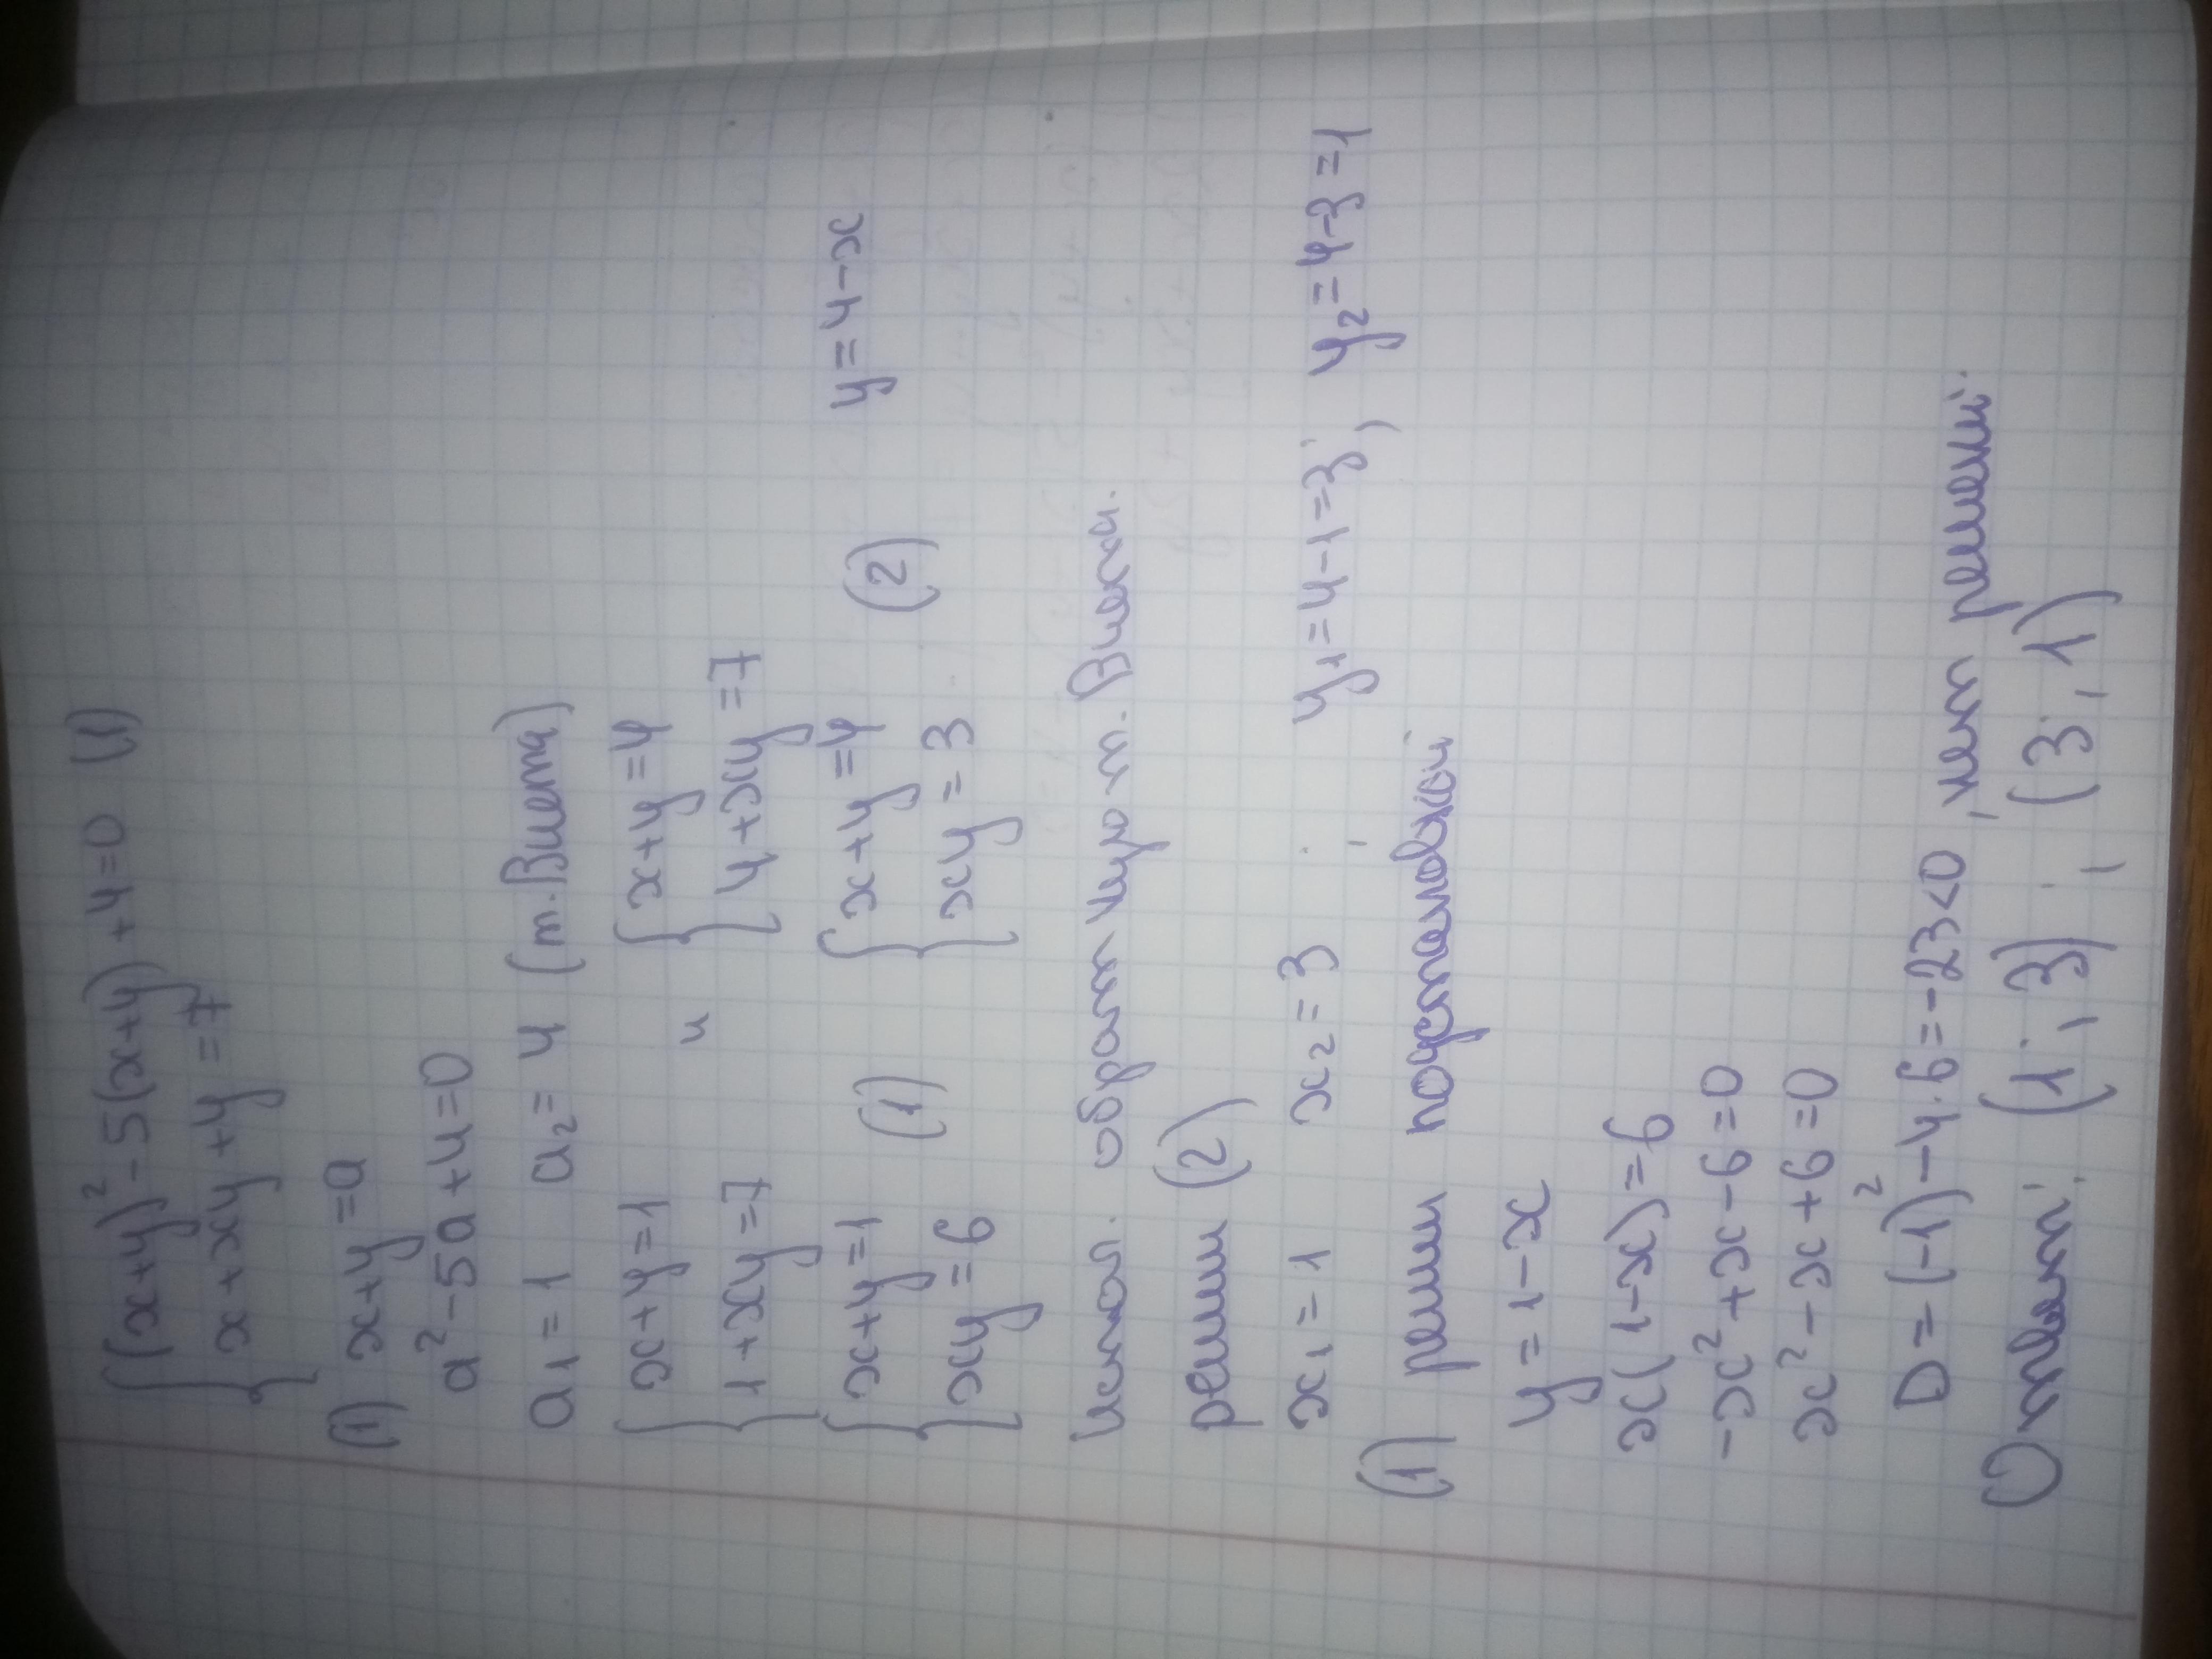 {(x+y)² - 5(x+y) + 4 = 0 (1)
{x + xy + y = 7
(1) x+y = a
a² - 5a + 4 = 0
a₁ = 1 a₂ = 4 (т. Виета)
{x+y=1 и {x+y=4
{1+xy=7 {4+xy=7
{x+y=1 (1) {x+y=4 (2) y=4-x
{xy=6 {xy=3
Испол. обратную т. Виета.
решим (2)
x₁ = 1 x₂ = 3 ; y₁ = 4-1 = 3; y₂ = 4-3 = 1
(1) решим подстановкой
y = 1 - x
x(1-x) = 6
-x² + x - 6 = 0
x² - x + 6 = 0
D = (-1)² - 4·6 = -23 < 0, нет решений.
Ответ: (1; 3); (3; 1)